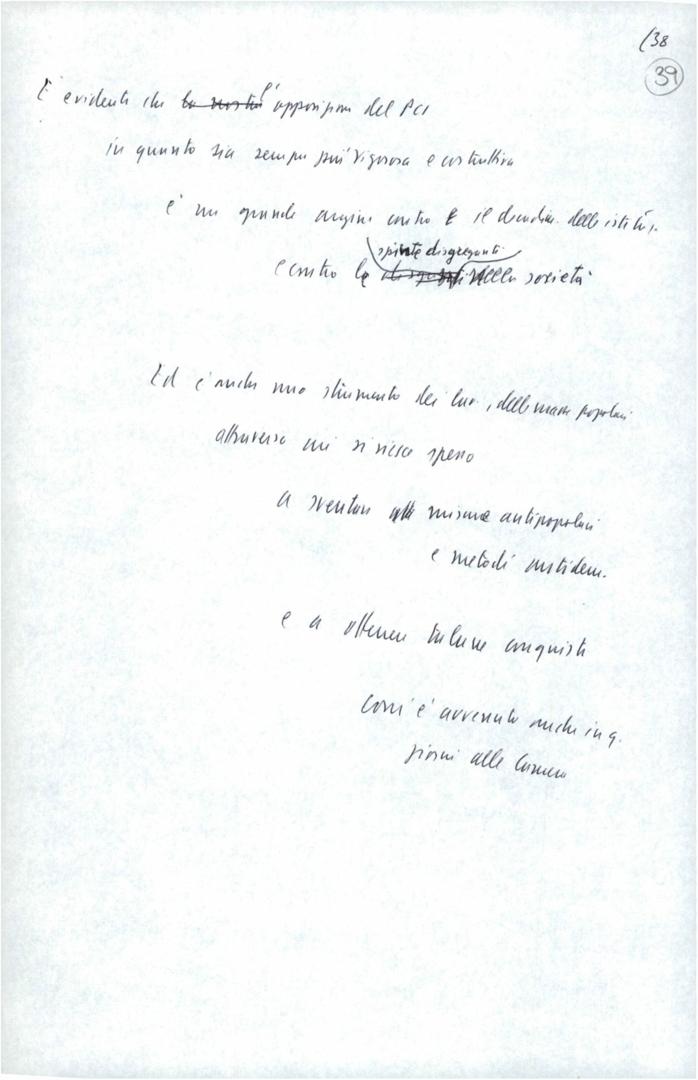 (38
39
È evidente che la nostra l'opposizione del PCI
in quanto sia sempre più vigorosa e costruttiva
è un grande argine contro il decadim. delle istituz.
spinte disgreganti
e contro le della società
Ed è anche uno strumento dei lav., delle masse popolari
attraverso cui si riesce spesso
a sventare misure antipopolari
e metodi antidem.
e a ottenere talune conquiste
Così è avvenuto anche in q.
giorni alla Camera